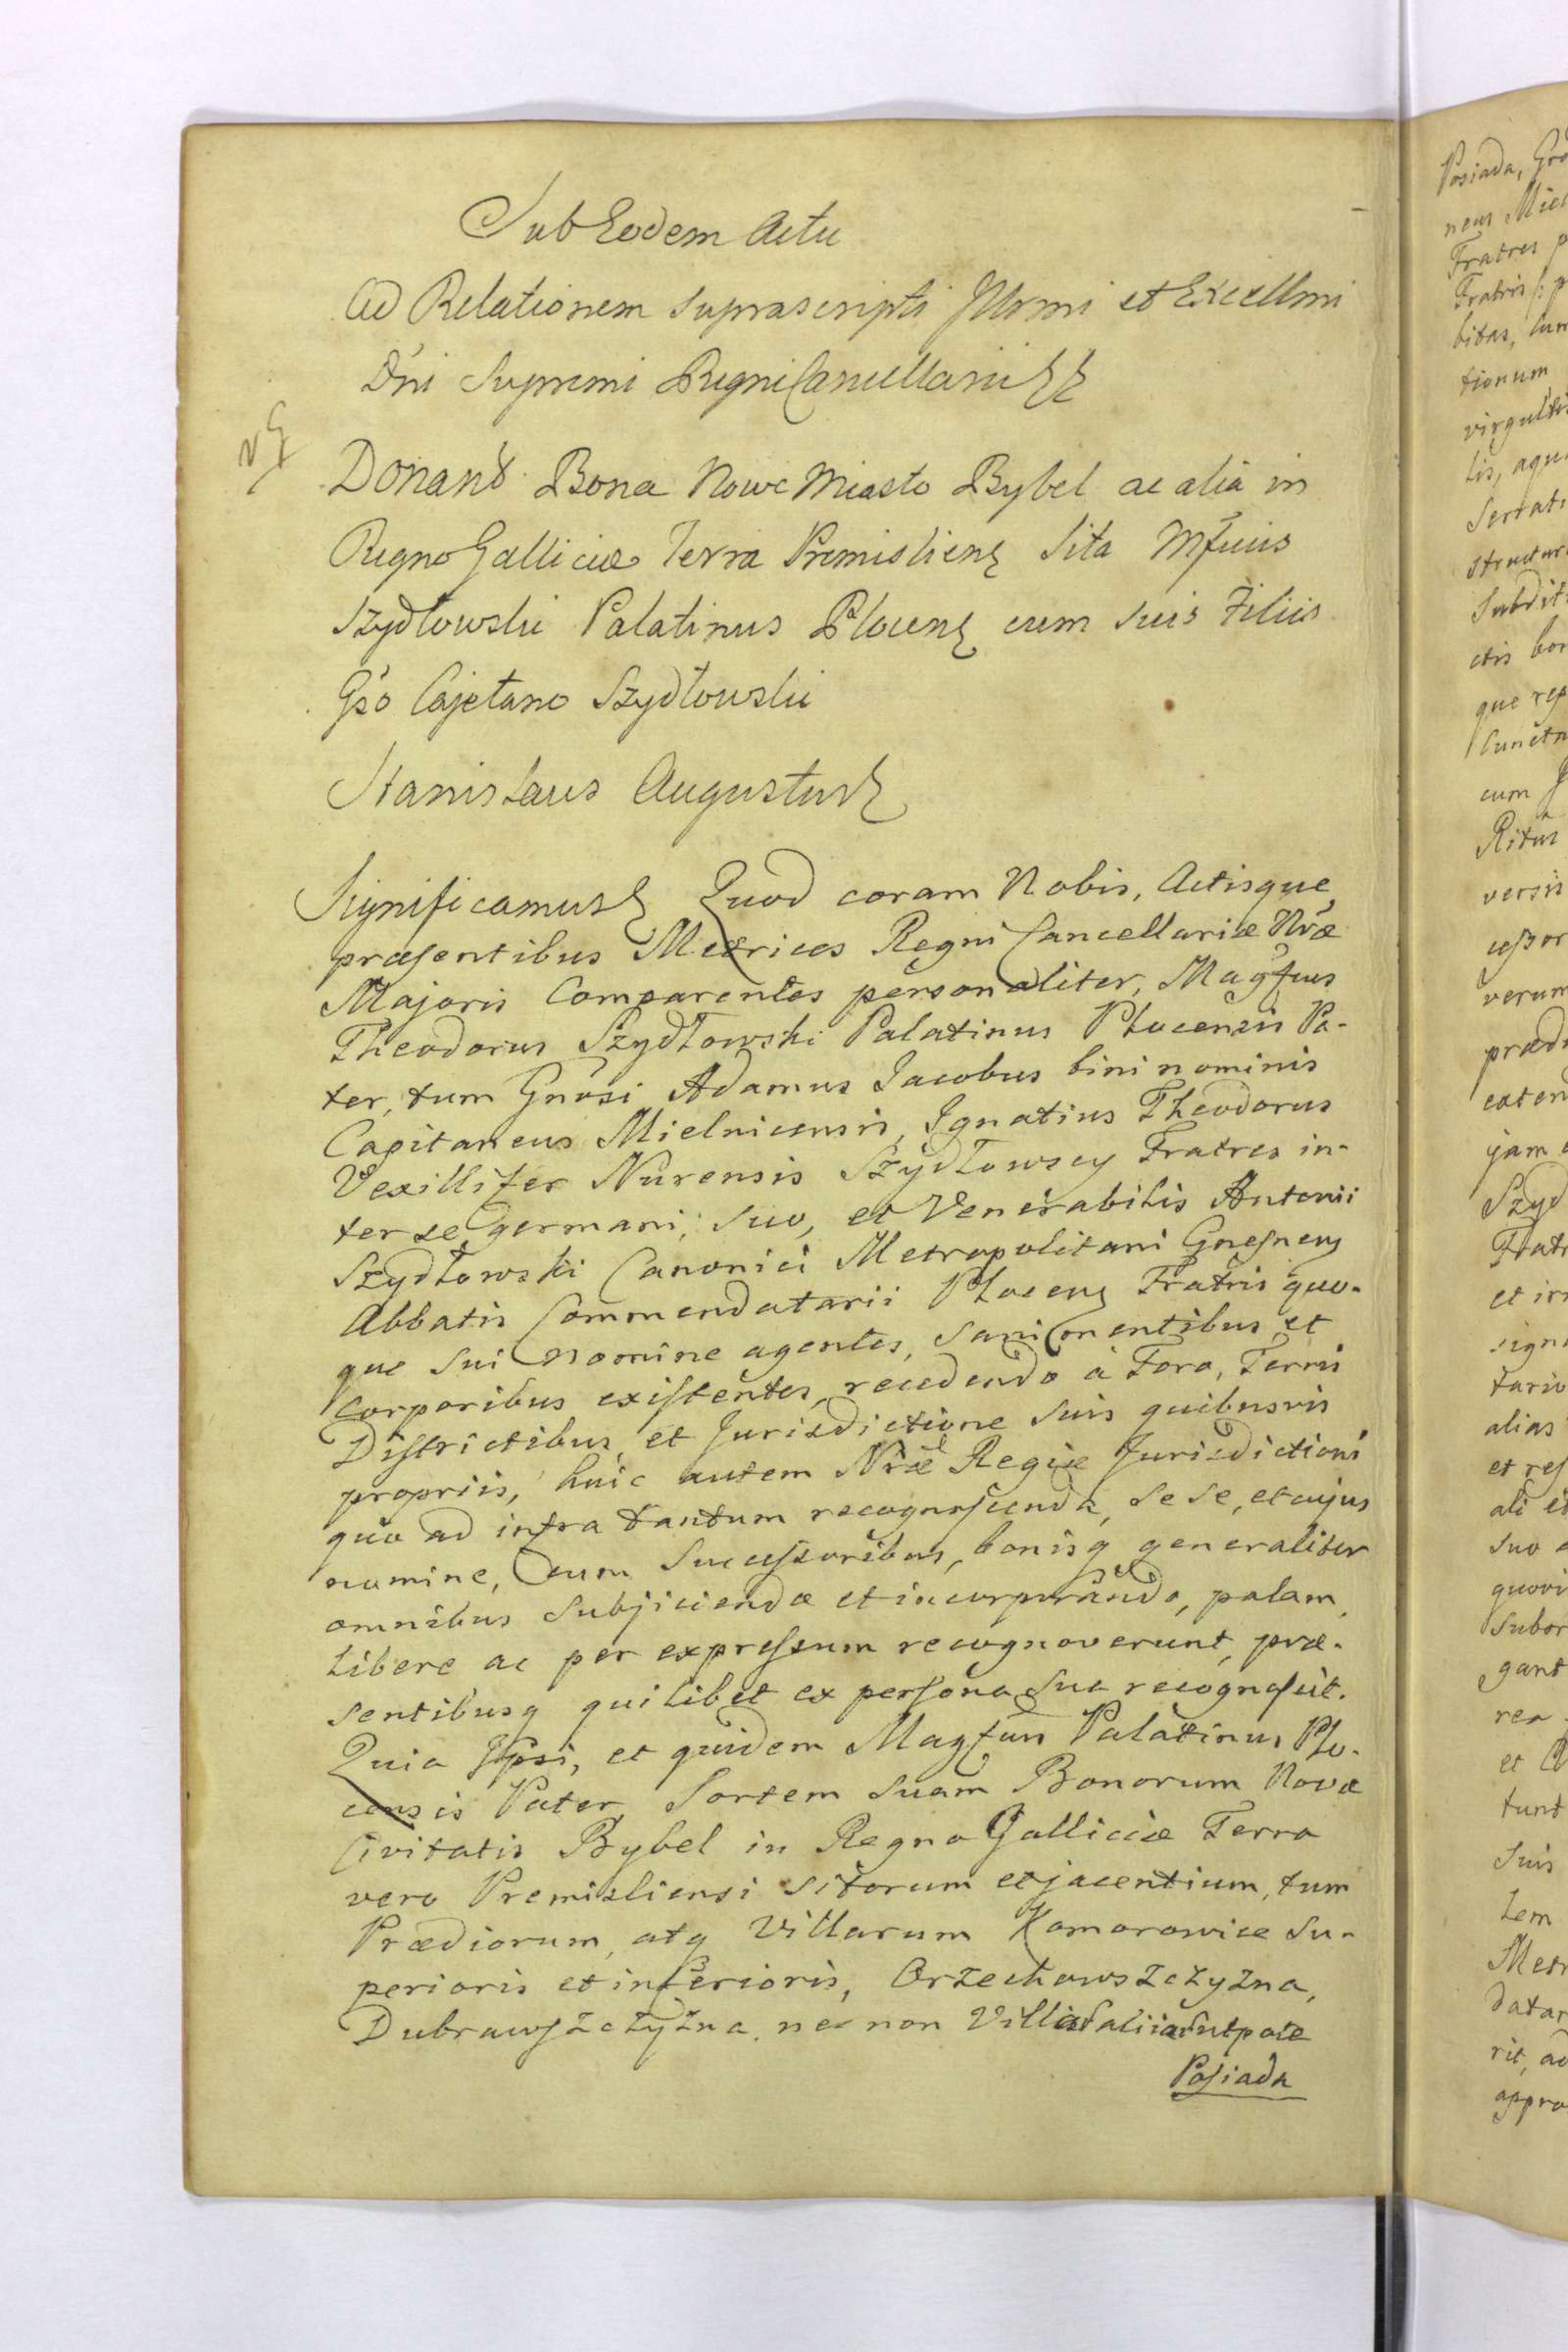 Sub Eodem Actu
Ad Relationem suprascripti Illrmi et Excellmi
Dni Supremi Regni Cancellarii
Donant Bona Nowe Miasto Bybel ac alia in
Regno Galliciæ Terra Premislien Sita Mfcus
Szydłowski Palatinus Plocen cum suis Filiis
Gso Cajetano Szydłowski
Stanislaus Augustus
Significamus Quod coram Nobis, Actisque
præsentibus Metrices Regni Cancellariæ Nræ
Majoris Comparentes personaliter, Magfcus
Theodorus Szydłowski Palatinus Plocensis Pa-
ter, tum Gnosi Adamus Jacobus bini nominis
Capitaneus Mielnicensis, Ignatius Theodorus
Vexillifer Nurensis Szydłowscy Fratres in-
ter se germani, suo, et Venerabilis Antonii
Szydłowski Canonici Metropolitani Gnesnen
Abbatis Commendatarii Plocen Fratris quo-
que sui nomine agentes, sani mentibus et
corporibus existentes, recedendo à Foro, Terris
Districtibus et Jurisdictione suis quibusvis
propriis, huic autem Nræ Regiæ Jurisdictioni
quo ad infra tantum recognoscenda, se se, et cujus
nomine, cum Successoribus, bonisq generaliter
omnibus subjiciendo et incorporando, palam
libere ac per expressum recognoverunt, præ-
sentibusq quilibet ex persona sua recognoscit.
Quia Ipsi, et quidem Magfcus Palatinus Plo-
censis Pater, Sortem suam Bonorum Novæ
Civitatis Bybel in Regno Galliciæ Terra
vero Premisliensi sitorum et jacentium, tum
Prædiorum, atq Villarum Komorowice Su-
perioris et inferioris, Orzechowszczyzna,
Dubrawszczyzna, nec non Villis aliis utpote
Posiada
Posiada,
Fratres
Fratris
bitas, cum
tionum
lis,
que
cum
Ritus
versis
verum
jam
et
alias
suo
et
tunt
suis
rit, ad